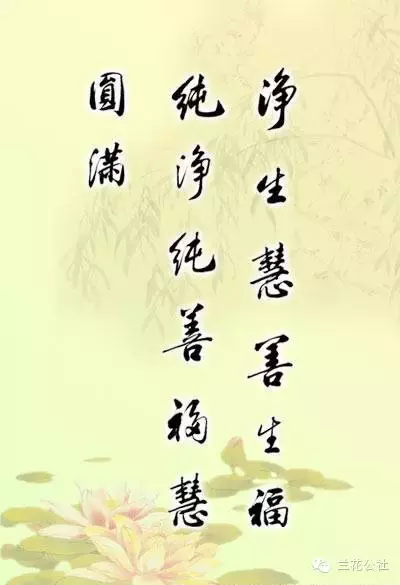 净生慧善生福
纯净纯善福慧
圓满
兰花公社